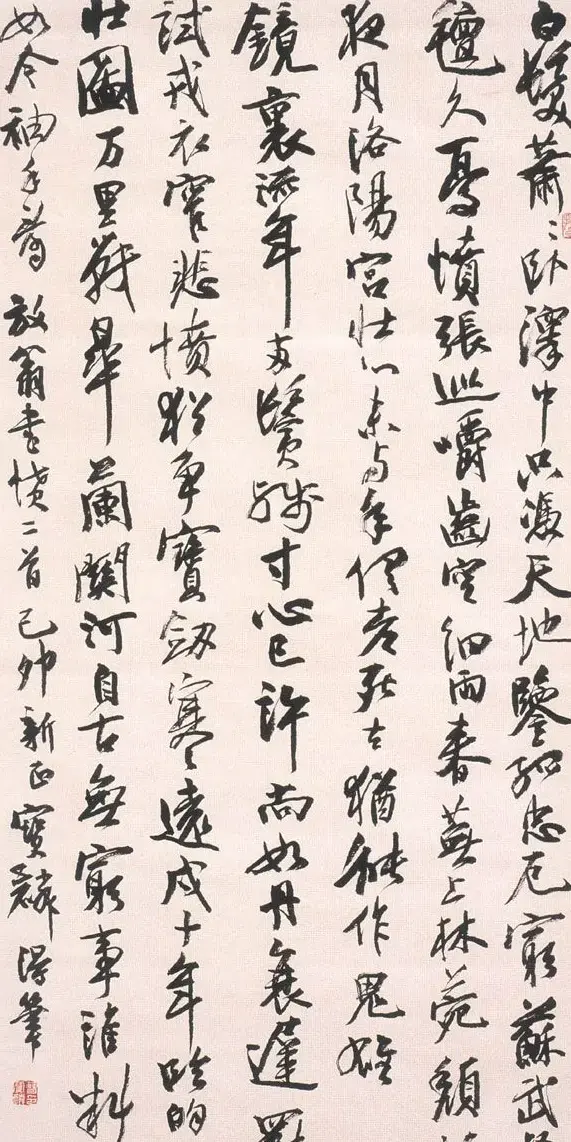 白髮蕭〻臥澤中只憑天地鑒孤忠厄窮蘇武
氈久憂憤張巡嚼齒空細雨春蕪上林苑頹
夜月洛陽宮壯心未與年俱老死去猶能作鬼雄
鏡裏流年兩鬢殘寸心已許尚如丹衰遲
試戎衣窄悲憤猶爭寶劍寒遠戍十年臨的
壯圖万里戰皋蘭關河自古無窮事誰料
如今袖手看 放翁書憤二首己卯新正寶麟得筆